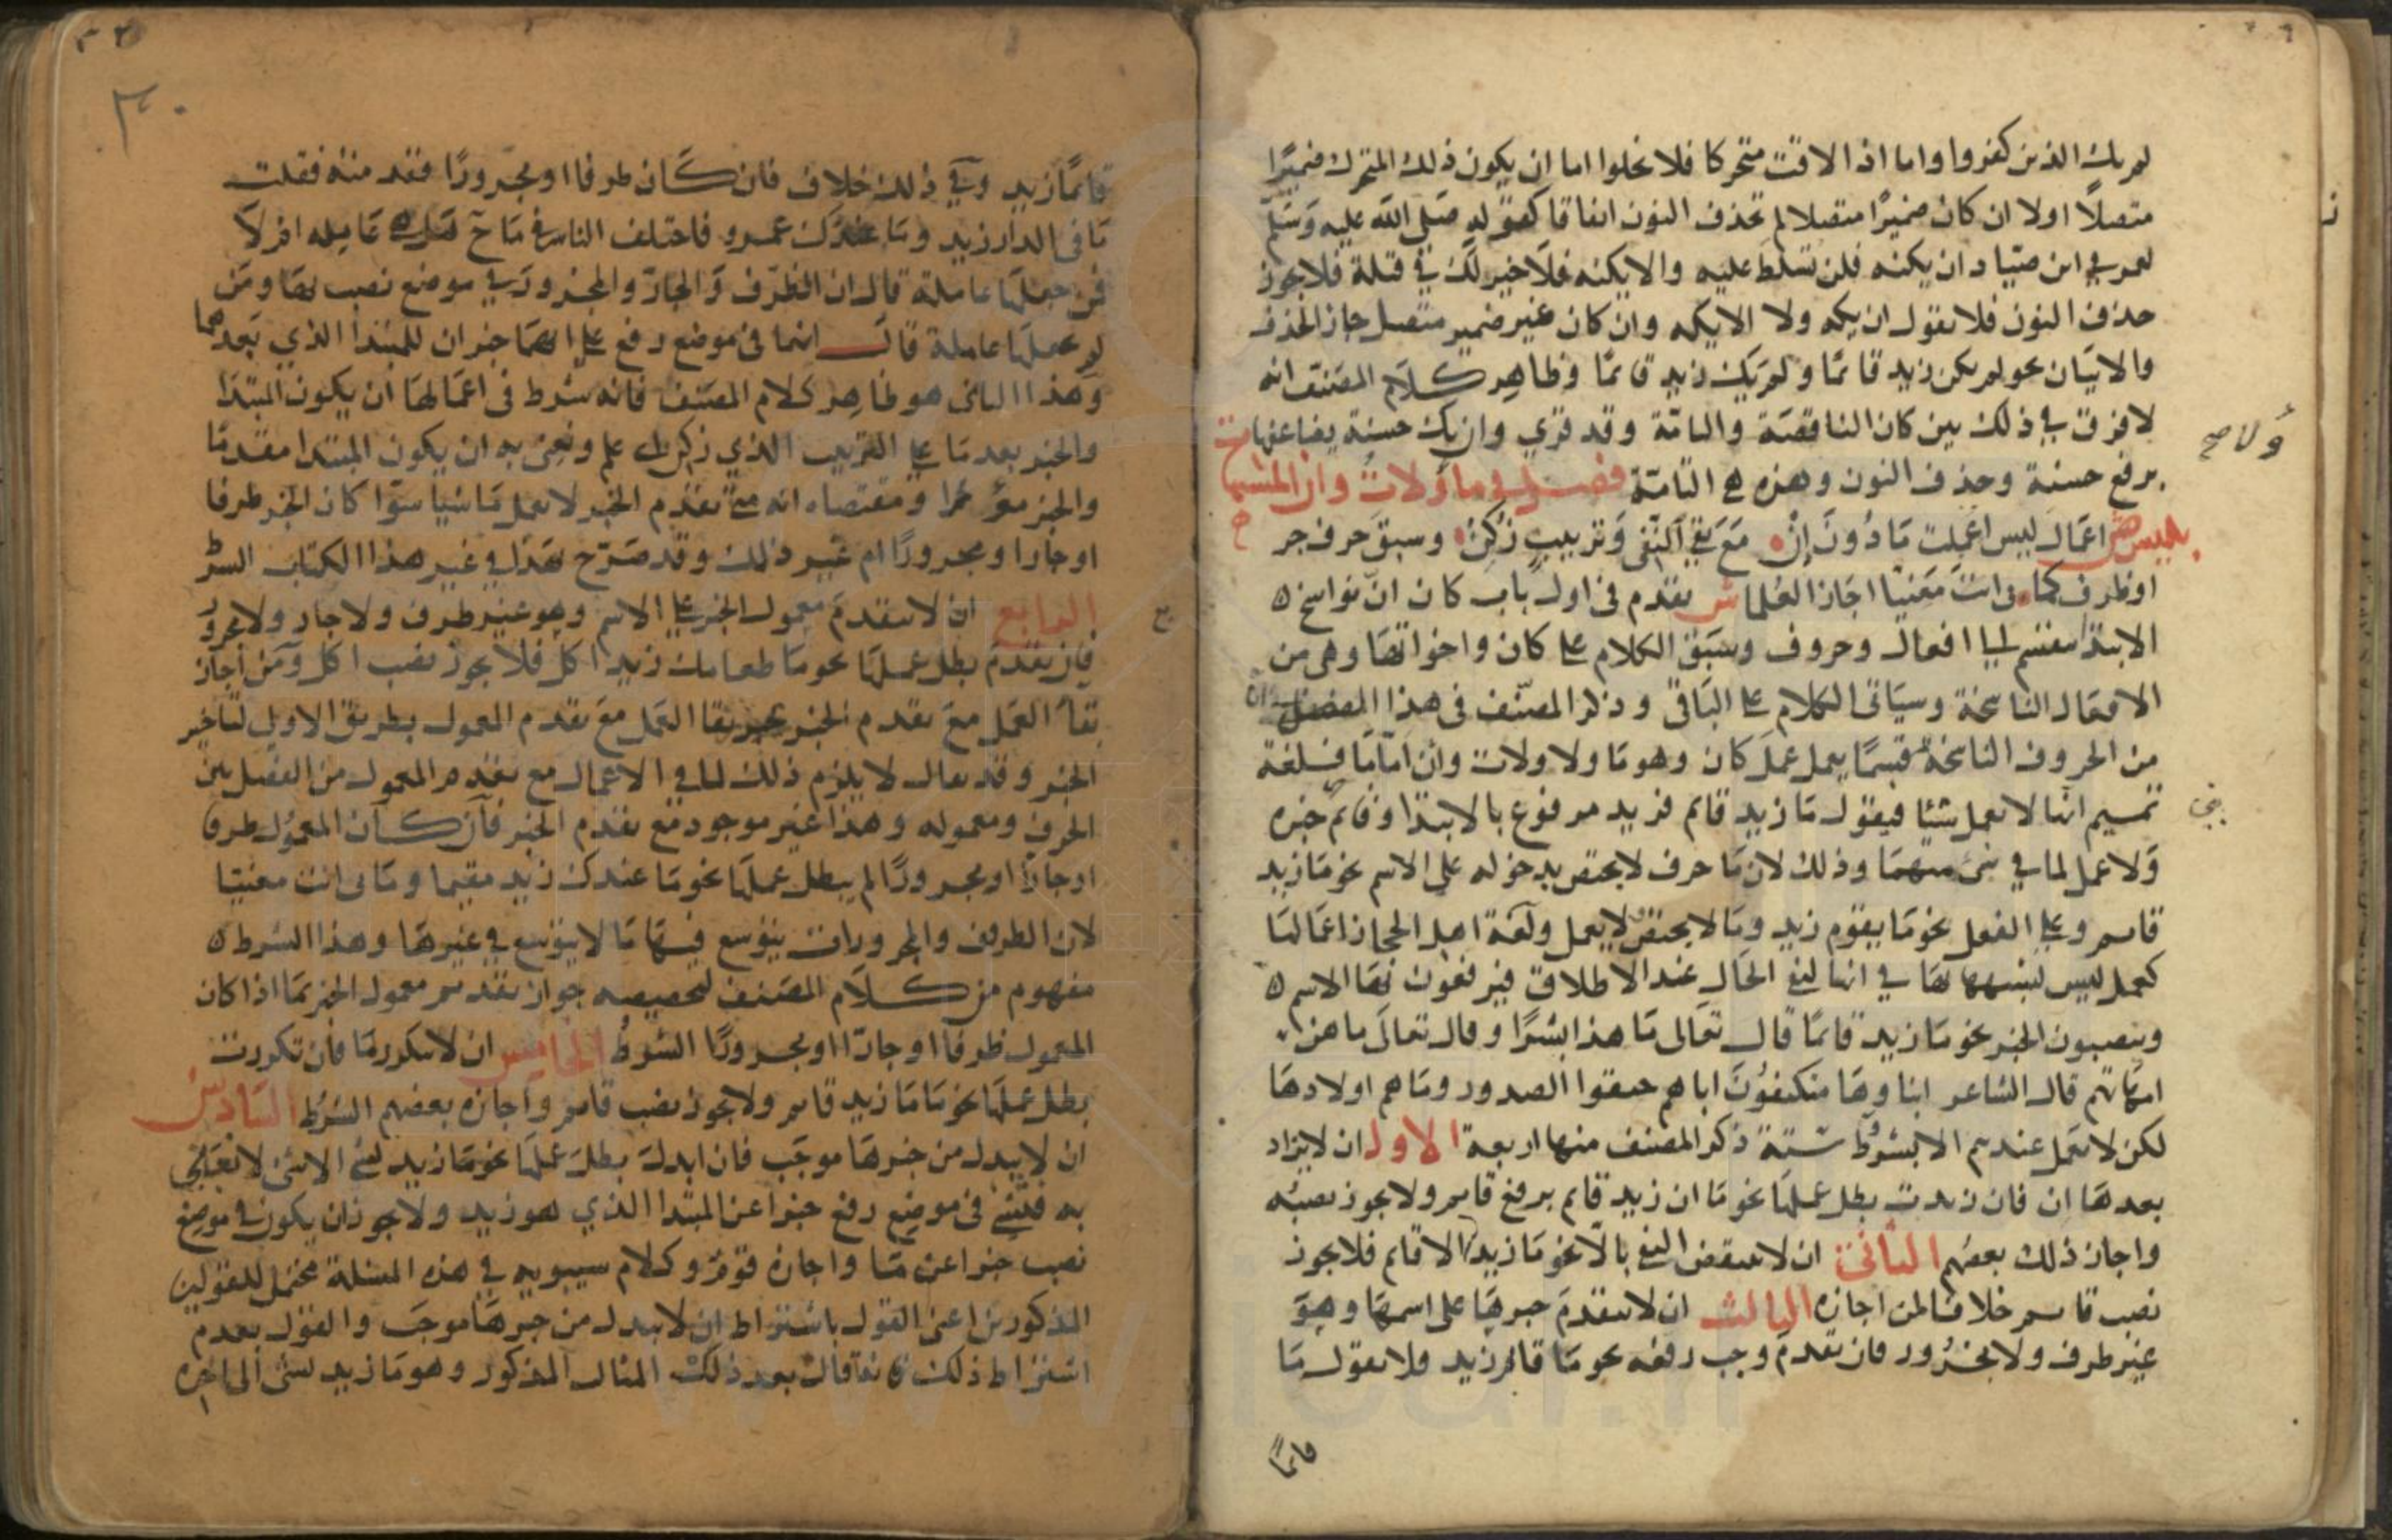 لم يك الذين كفروا واما اذا لاقت متحركا فلا يخلوا اما ان يكون ذلك المتحرك ضميرًا
متصلًا اولا ان كان ضميرًا متصلا لم تحذف النون اتفاقا كقوله صلى الله عليه وسلم
لعمر في ابن صياد ان يكنه فلن تسلط عليه والا يكنه فلا خير لك في قتله فلا يجوز
حذف النون فلا تقول ان يكه ولا الا يكه وان كان غير ضمير متصل جاز الحذف
والاتيان نحو لم يكن زيد قائمًا ولم يك زيد قائمًا وظاهر كلام المصنف انه
لا فرق في ذلك بين كان الناقصة والتامة وقد قري وان يك حسنة يضاعفها
برفع حسنة وحذف النون وهذه هي التامة فصل في ما ولا ولات وان المشبهات
بليس ص اعمال ليس اعملت ما دون ان مع بقي النفي وترتيب زكن وسبق حرف جر
او ظرف كما بي انت معنيا اجاز العلما ش تقدم في اول باب كان ان نواسخ
الابتدا تنقسم الى افعال وحروف وسبق الكلام على كان واخواتها وهي من
الافعال الناسخة وسياتي الكلام على الباقي وذكر المصنف في هذا الفصل
من الحروف الناسخة قسمًا يعمل عمل كان وهو ما ولا ولات وان اما ما فلغة
تميم انها لا تعمل شيئا فيقول ما زيد قائم فزيد مرفوع بالابتدا وقائم خبره
ولا عمل لما في شي منهما وذلك لان ما حرف لا يختص بدخوله على الاسم نحو ما زيد
قائم وعلى الفعل نحو ما يقوم زيد وما لا يختص لا يعمل ولغة اهل الحجاز اعمالها
كعمل ليس لشبهها بها في انها لنفي الحال عند الاطلاق فيرفعون بها الاسم
وينصبون الخبر نحو ما زيد قائمًا قال تعالى ما هذا بشرًا وقال تعالى ما هن
امهاتهم قال الشاعر ابناوها متكنفون اباهم حنقوا الصدور وما هم اولادها
لكن لا تعمل عندهم الا بشروط ستة ذكر المصنف منها اربعة الاول ان لا يزاد
بعدها ان فان زيدت بطل عملها نحو ما ان زيد قائم برفع قائم ولا يجوز نصبه
واجاز ذلك بعضهم الثاني ان لا ينتقض النفي بالا نحو ما زيد الا قائم فلا يجوز
نصب قائم خلافا لمن اجازه الثالث ان لا يتقدم خبرها على اسمها وهو
غير ظرف ولا مجرور فان تقدم وجب رفعه نحو ما قائم زيد فلا تقول ما
قائمًا
٣٠
قائمًا زيد وفي ذلك خلاف فان كان ظرفا او مجرورًا فقدمته فقلت
ما في الدار زيد وما عندك عمرو فاختلف الناس في ما هل هي عاملة ام لا
فمن جعلها عاملة قال ان الظرف والجار والمجرور في موضع نصب بها ومن
لم يجعلها عاملة قال انهما في موضع رفع على انهما خبران للمبتدا الذي بعدهما
وهذا الثاني هو ظاهر كلام المصنف فانه شرط في اعمالها ان يكون المبتدا
والخبر بعد ما على الترتيب الذي زكن اي علم ونعني به ان يكون المبتدا مقدما
والخبر مؤخرا ومقتضاه انه متى تقدم الخبر لا تعمل ما شيا سوا كان الخبر ظرفا
او جارا ومجرورًا ام غير ذلك وقد صرح بهذا في غير هذا الكتاب الشرط
الرابع ان لا يتقدم معمول الخبر على الاسم وهو غير ظرف ولا جار ولا مجرور
فان تقدم بطل عملها نحو ما طعامك زيد اكل فلا يجوز نصب اكل ومن اجاز
بقا العمل مع تقدم الخبر يجيز بقا العمل مع تقدم المعمول بطريق الاولى لتاخير
الخبر وقد يقال لا يلزم ذلك لما في الاعمال مع تقدم المعمول من الفصل بين
الحرف ومعموله وهذا غير موجود مع تقدم الخبر فان كان المعمول ظرفا
او جارًا او مجرورًا لم يبطل عملها نحو ما عندك زيد مقيما وما بي انت معنيا
لان الظروف والمجرورات يتوسع فيها ما لا يتوسع في غيرها وهذا الشرط
مفهوم من كلام المصنف لتخصيصه جواز تقديم معمول الخبر بما اذا كان
المعمول ظرفا او جارًا او مجرورًا الشرط الخامس ان لا تتكرر ما فان تكررت
بطل عملها نحو ما ما زيد قائم ولا يجوز نصب قائم واجازه بعضهم الشرط السادس
ان لا يبدل من خبرها موجب فان ابدل بطل عملها نحو ما زيد بشي الا شي لا يعبا
به فبشي في موضع رفع خبرا عن المبتدا الذي هو زيد ولا يجوز ان يكون في موضع
نصب خبرا عن ما واجازه قوم وكلام سيبويه في هذه المسئلة محتمل للقولين
المذكورين اعني القول باشتراط ان لا يبدل من خبرها موجب والقول بعدم
اشتراط ذلك فانه قال بعد ذلك المثال المذكور وهو ما زيد بشي الى اخره